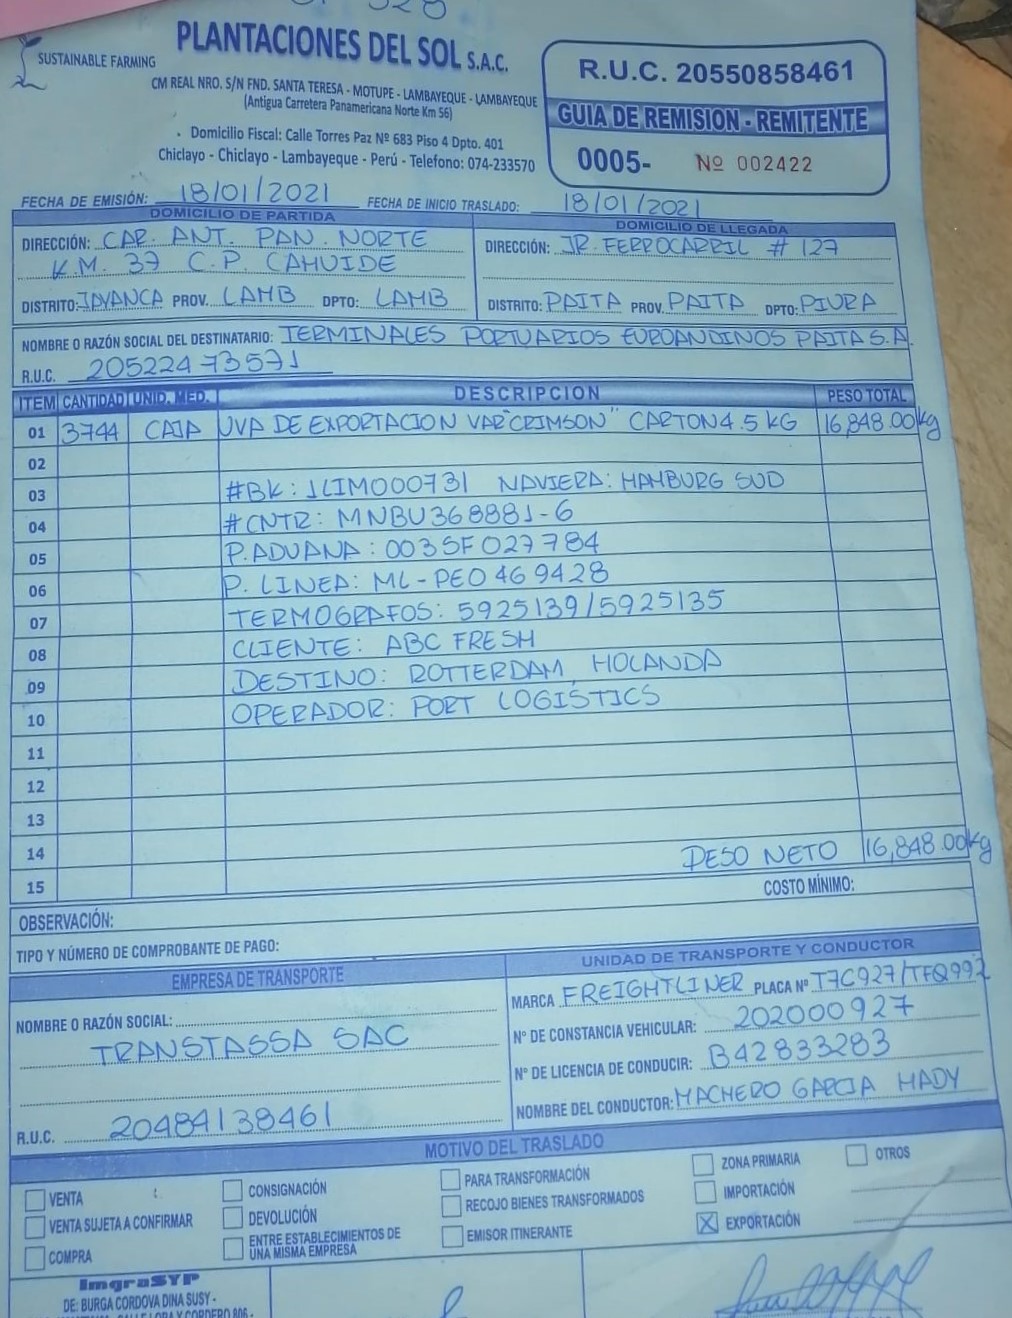 SUSTAINABLE FARMING
PLANTACIONES DEL SOL S.A.C.
CM REAL NRO. S/N FND. SANTA TERESA - MOTUPE - LAMBAYEQUE - LAMBAYEQUE
(Antigua Carretera Panamericana Norte Km 56)
Domicilio Fiscal: Calle Torres Paz Nº 683 Piso 4 Dpto. 401
Chiclayo - Chiclayo - Lambayeque - Perú - Telefono: 074-233570
R.U.C. 20550858461
GUIA DE REMISION - REMITENTE
0005- Nº 002422
FECHA DE EMISIÓN: 18/01/2021 FECHA DE INICIO TRASLADO: 18/01/2021
DOMICILIO DE PARTIDA
DIRECCIÓN: CAR. ANT. PAN. NORTE
K.M. 37 C.P. CAHUIDE
DISTRITO: JAYANCA PROV. LAMB DPTO: LAMB
DOMICILIO DE LLEGADA
DIRECCIÓN: JR. FERROCARRIL # 127
DISTRITO: PAITA PROV. PAITA DPTO: PIURA
NOMBRE O RAZÓN SOCIAL DEL DESTINATARIO: TERMINALES PORTUARIOS EUROANDINOS PAITA S.A.
R.U.C. 20522473571
ITEM CANTIDAD UNID. MED. DESCRIPCION PESO TOTAL
01 3744 CAJA UVA DE EXPORTACION VAR"CRIMSON" CARTON 4.5 KG 16,848.00kg
02
03 #BK: 1LIM000731 NAVIERA: HAMBURG SUD
04 #CNTR: MNBU368881-6
05 P.ADUANA: 0035F027784
06 P. LINEA: ML-PE0469428
07 TERMOGRAFOS: 5925139/5925135
08 CLIENTE: ABC FRESH
09 DESTINO: ROTTERDAM, HOLANDA
10 OPERADOR: PORT LOGISTICS
11
12
13
14 PESO NETO 16,848.00kg
15 COSTO MÍNIMO:
OBSERVACIÓN:
TIPO Y NÚMERO DE COMPROBANTE DE PAGO:
EMPRESA DE TRANSPORTE
NOMBRE O RAZÓN SOCIAL:
TRANSTASSA SAC
R.U.C. 20484138461
UNIDAD DE TRANSPORTE Y CONDUCTOR
MARCA FREIGHTLINER PLACA Nº T7C927/TFQ997
N° DE CONSTANCIA VEHICULAR: 202000927
N° DE LICENCIA DE CONDUCIR: B42833283
NOMBRE DEL CONDUCTOR: MACHERO GARCIA HADY
MOTIVO DEL TRASLADO
VENTA CONSIGNACIÓN PARA TRANSFORMACIÓN ZONA PRIMARIA OTROS
VENTA SUJETA A CONFIRMAR DEVOLUCIÓN RECOJO BIENES TRANSFORMADOS IMPORTACIÓN
COMPRA ENTRE ESTABLECIMIENTOS DE UNA MISMA EMPRESA EMISOR ITINERANTE X EXPORTACIÓN
ImgraSYP
DE: BURGA CORDOVA DINA SUSY -